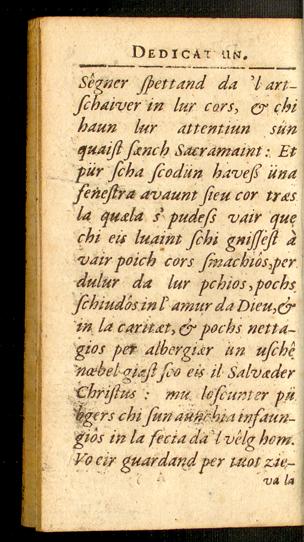 DEDICATIUN.
Sêgner ſpettand da 'l art-
ſchaiver in lur cors, & chi
haun lur attentiun sün
quaiſt ſænch Sacramaint: Et
pür ſcha ſcodün haveſs üna
feneſtra avaunt ſieu cor træs
la quæla s' pudeſs vair que
chi eis luaint ſchi gniſſeſt à
vair poich cors ſmachiôs, per
dulur da lur pchios, pochs
ſchiudôs in l' amur da Dieu, &
in la caritæt, & pochs netta-
gios per albergiær un uſchê
næbel giaſt ſco eis il Salvæder
Chriſtus : mu loſcunter pü
bgers chi ſun aunchia infaun-
giôs in la fecia da 'l vêlg hom.
Vo eir guardand per tuot zie-
va la